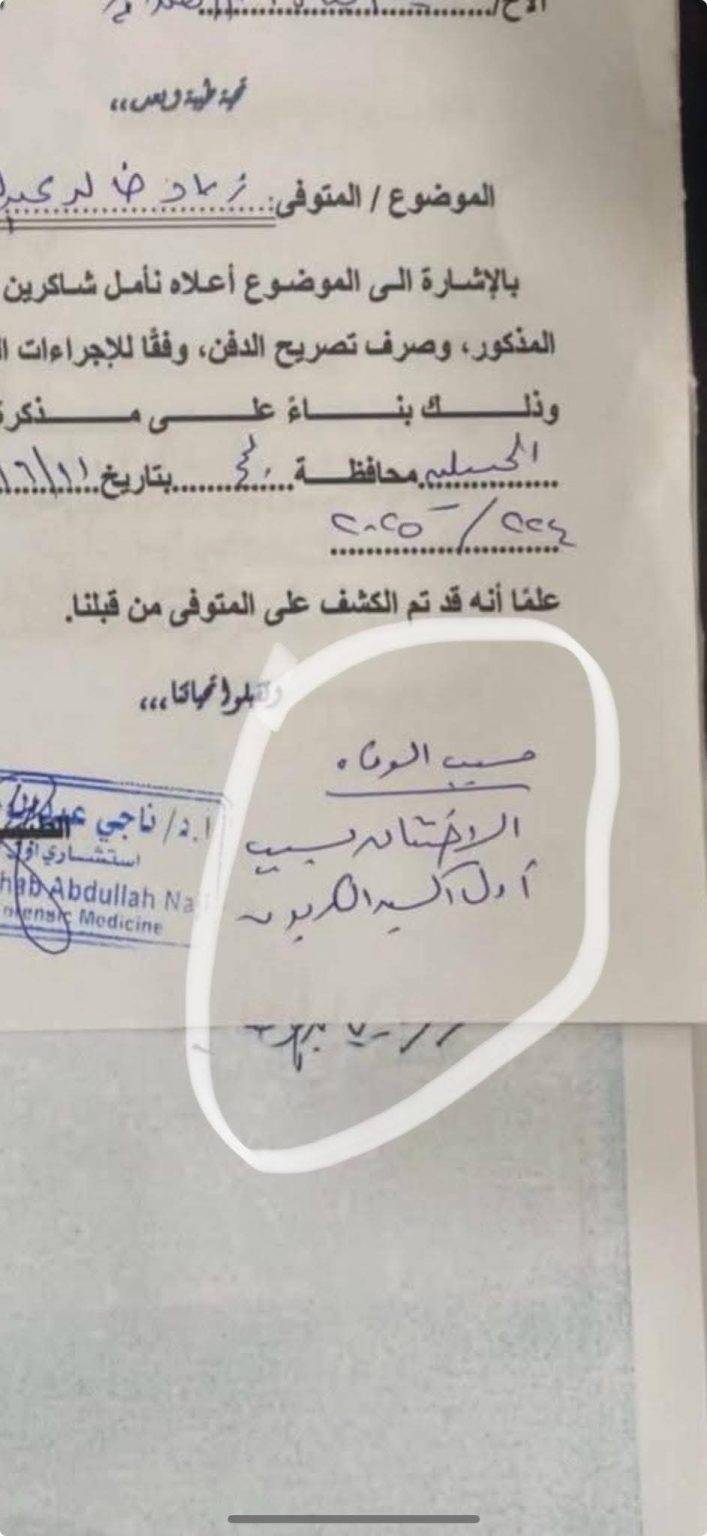 الأخ/
تحية طيبة وبعد،،
الموضوع / المتوفى: زياد خالد
بالإشارة الى الموضوع أعلاه نأمل شاكرين
المذكور، وصرف تصريح الدفن، وفقًا للإجراءات
وذلك بناءً على مذكرة
محافظة بتاريخ
٢٢٤ / ٢٠٢٥
علمًا أنه قد تم الكشف على المتوفى من قبلنا.
وتقبلوا تحياتنا،،،
سبب الوفاه
الاختناق بسبب
أول اكسيد الكربون
ا.د/ ناجي
استشاري
Abdullah
Forensic Medicine